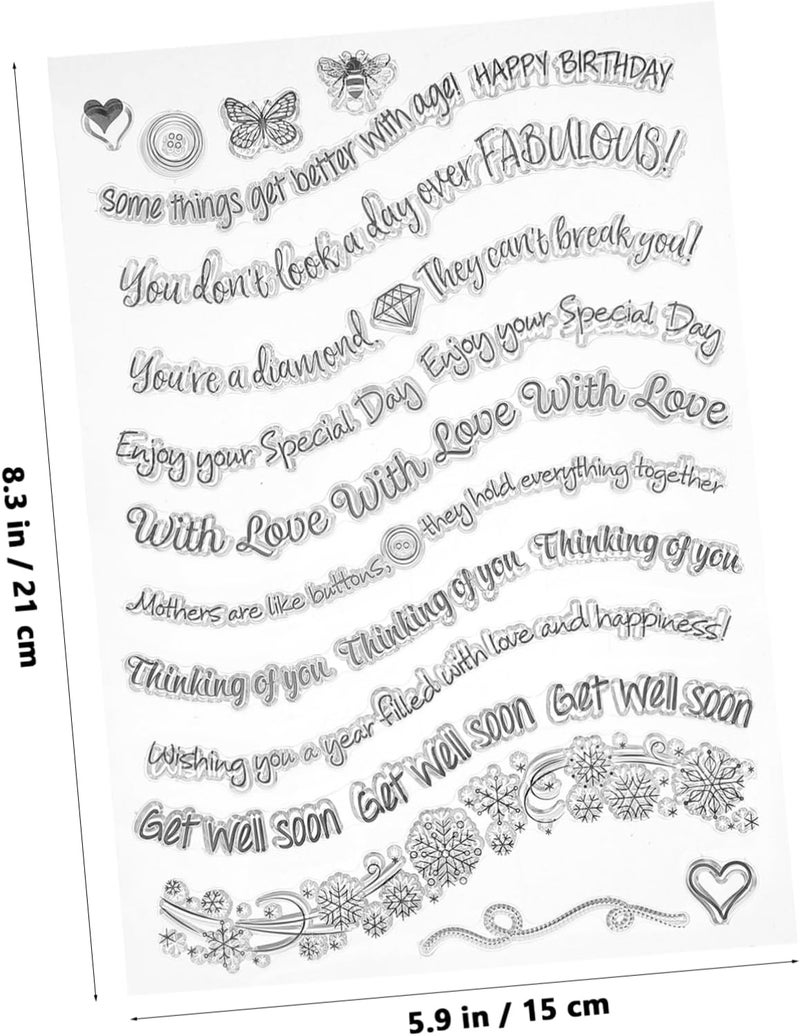 HAPPY BIRTHDAY
Some things get better with age!
You don't look a day over FABULOUS!
You're a diamond. They can't break you!
Enjoy your Special Day Enjoy your Special Day
With Love With Love With Love
Mothers are like buttons, they hold everything together
Thinking of you Thinking of you Thinking of you
Wishing you a year filled with love and happiness!
Get well soon Get well soon Get well soon
8.3 in / 21 cm
5.9 in / 15 cm